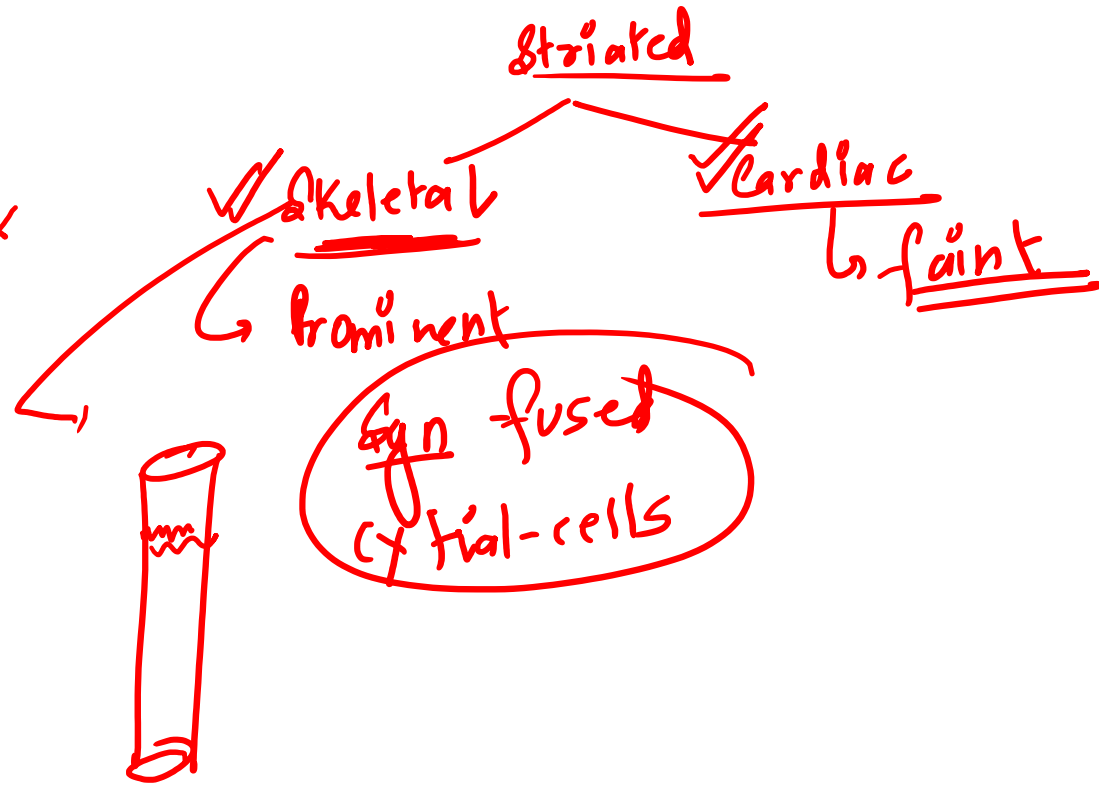 Striated
Skeletal
Cardiac
faint
Prominent
Syn - fused
cytial - cells